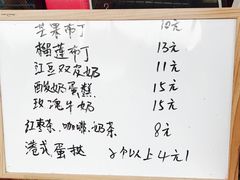 芒果布丁 10元
榴莲布丁 13元
红豆双皮奶 11元
酸奶蛋糕 15元
玫瑰牛奶 15元
红枣茶.咖啡.奶茶 8元
港式蛋挞 2个以上4元1